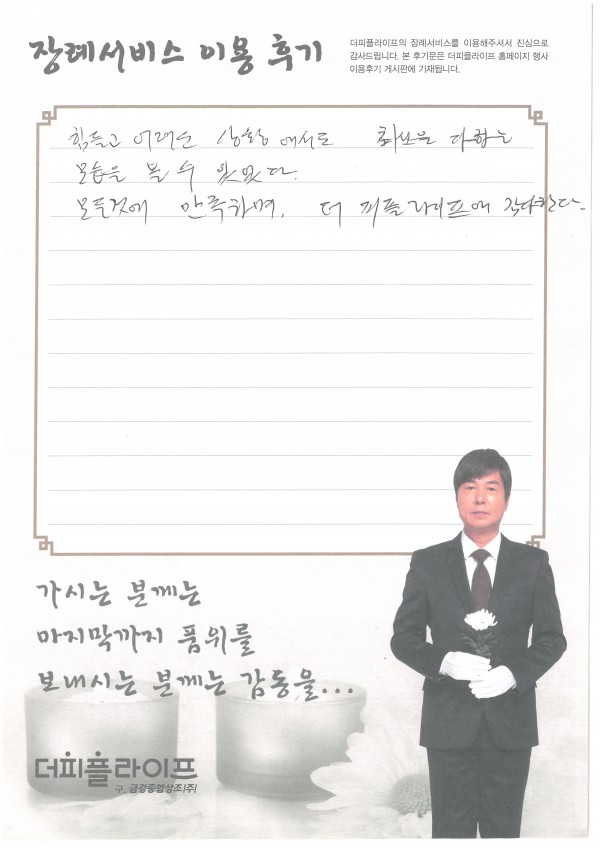 장례서비스 이용 후기
더피플라이프의 장례서비스를 이용해주셔서 진심으로
감사드립니다. 본 후기문은 더피플라이프 홈페이지 행사
이용후기 게시판에 기재됩니다.
힘들고 어려운 상황에서도 최선을 다하는
모습을 볼 수 있었다.
모든것에 만족하며, 더 피플라이프에 감사한다.
가시는 분께는
마지막까지 품위를
보내시는 분께는 감동을...
더피플라이프
구. 금강종합상조(주)